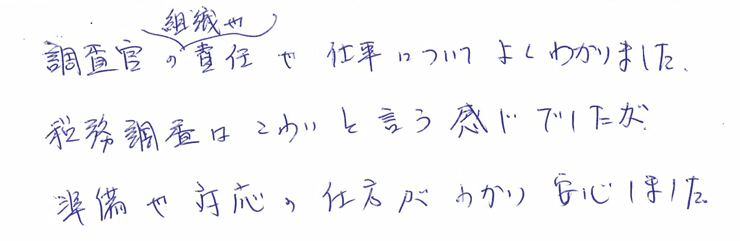 組織や
調査官の責任や仕事についてよくわかりました、
税務調査はこわいと言う感じでしたが
準備や対応の仕方がわかり安心しました。